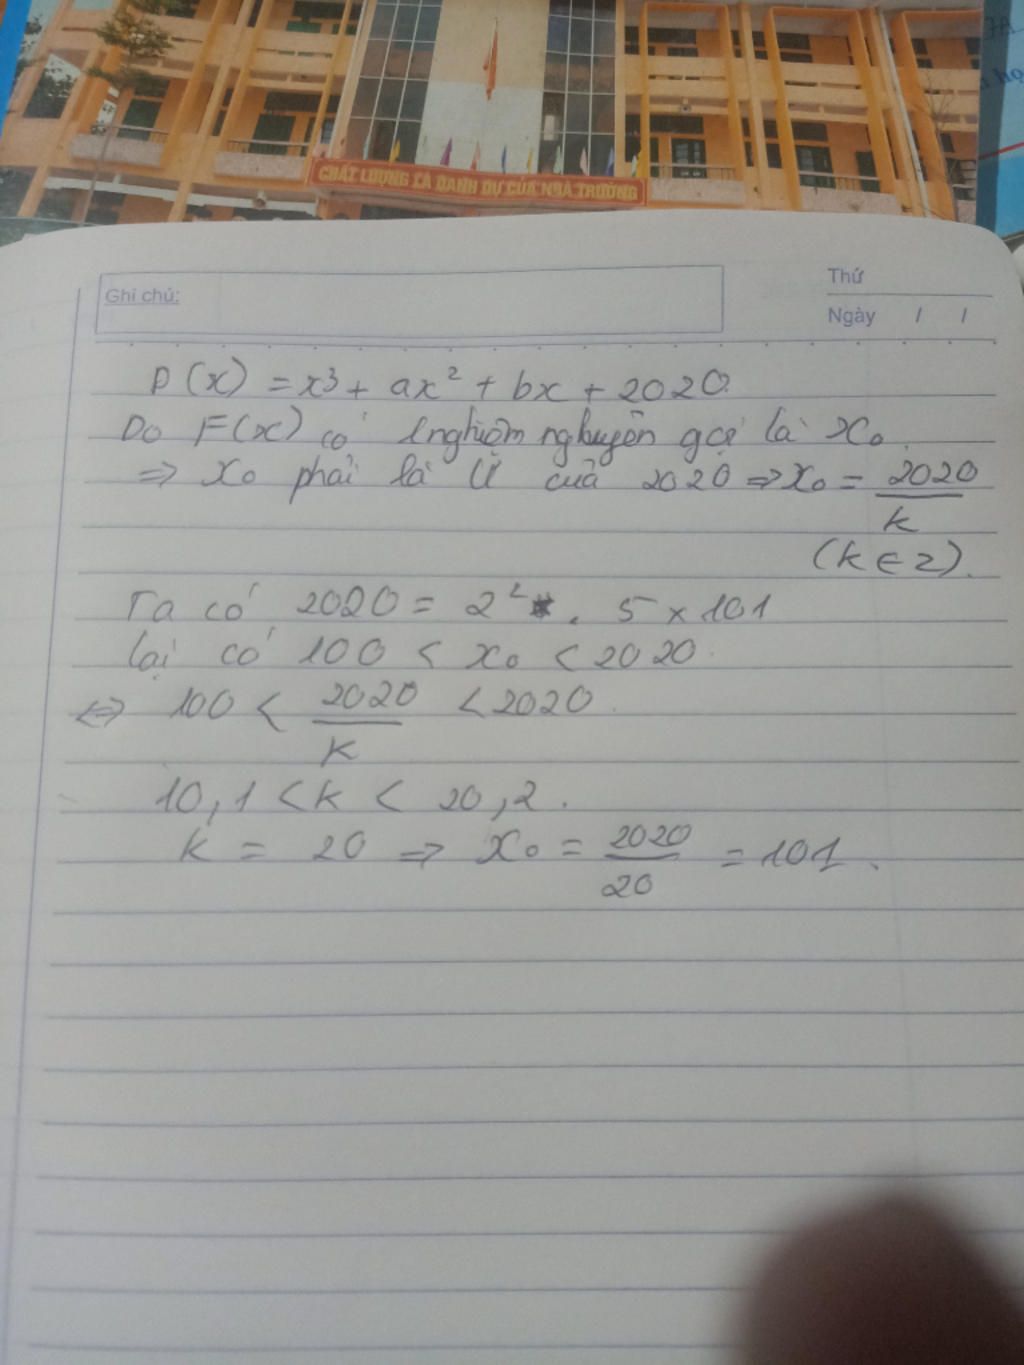 7A
CHẤT LƯỢNG LÀ DANH DỰ CỦA NHÀ TRƯỜNG
Ghi chú:
Thứ
Ngày / /
P(x) = x³ + ax² + bx + 2020.
Do F(x) có 1 nghiệm nguyên gọi là x₀.
⇒ x₀ phải là Ư của 2020 ⇒ x₀ = 2020/k
(k ∈ z).
Ta có 2020 = 2² . 5 x 101
lại có 100 < x₀ < 2020.
⇔ 100 < 2020/k < 2020.
10,1 < k < 20,2.
k = 20 ⇒ x₀ = 2020/20 = 101.